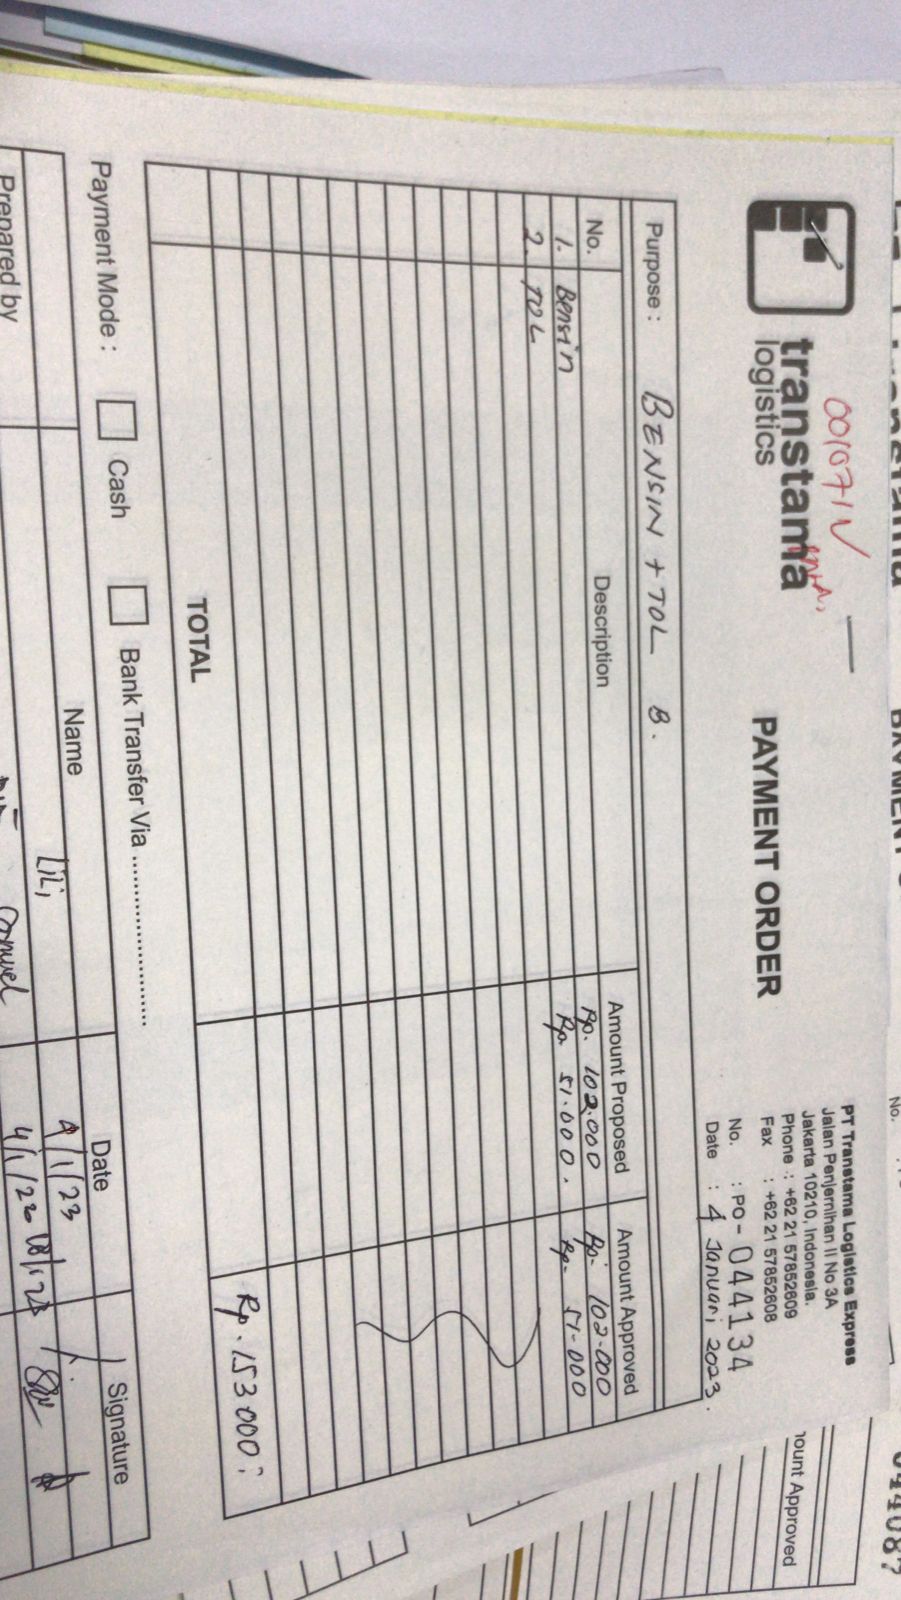 0010711
transtama
logistics
PAYMENT ORDER
PT Transtama Logistics Express
Jalan Penjernihan II No 3A
Jakarta 10210, Indonesia.
Phone : +62 21 57852609
Fax : +62 21 57852608
No. : PO - 044134
Date : 4 Januari 2023.
Purpose : BENSIN + TOL B.
No. Description Amount Proposed Amount Approved
1. Bensin Rp. 102.000 Rp. 102.000
2. TOL Rp. 51.000. Rp. 51.000
TOTAL Rp. 153.000
Payment Mode : Cash Bank Transfer Via ......................
Name Date Signature
Prepared by Lili 4/1/23
4/1/23
No.
ount Approved